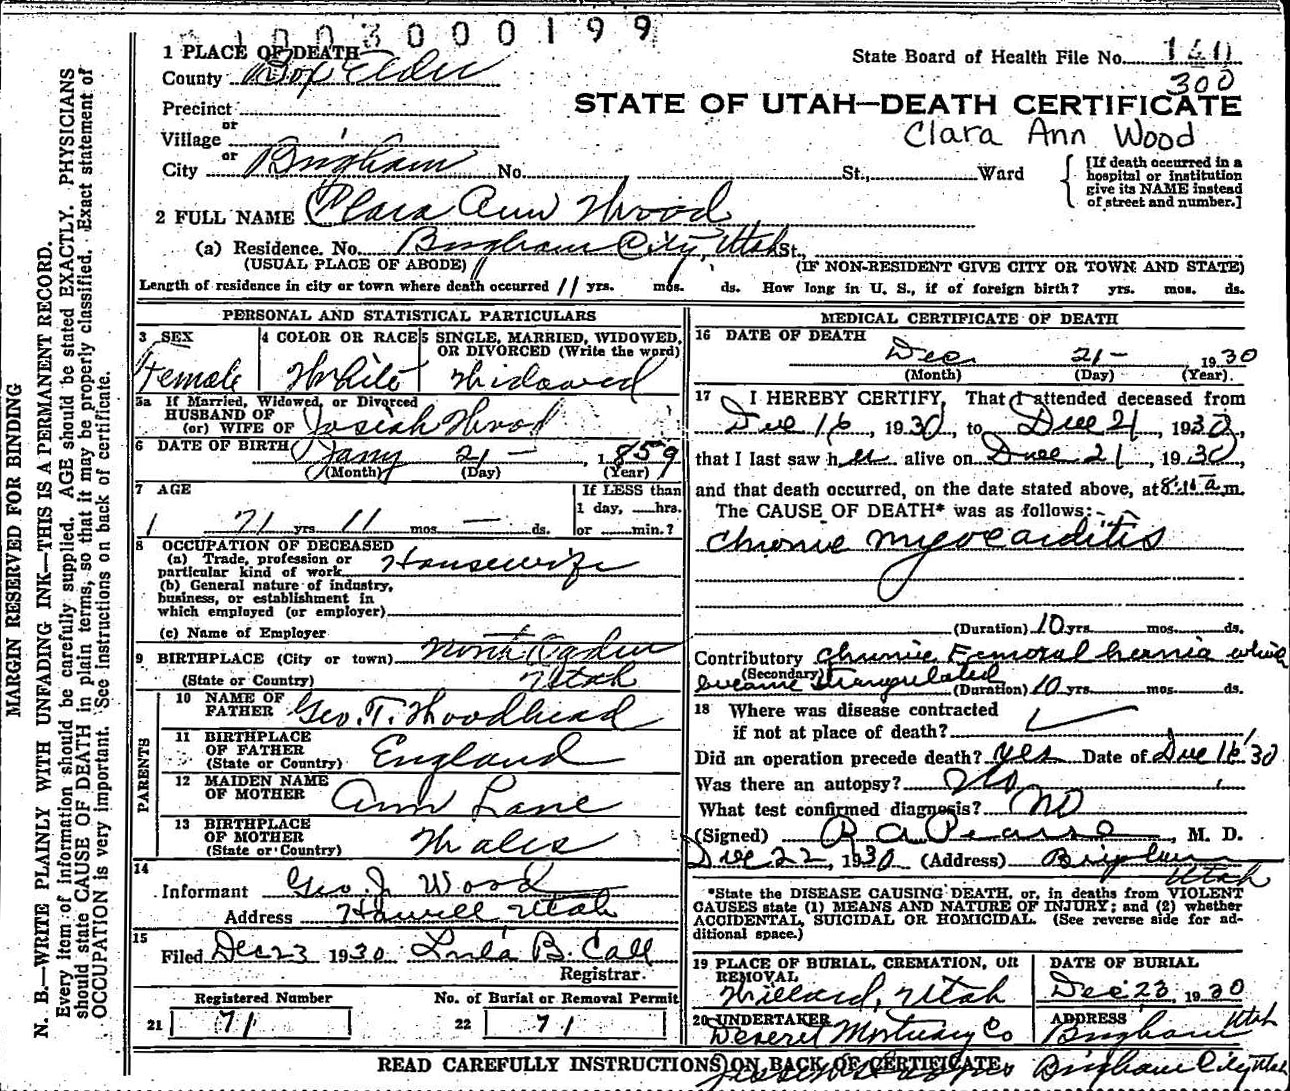 1003000199
1 PLACE OF DEATH
County Box Elder
State Board of Health File No. 140
300
Precinct
STATE OF UTAH—DEATH CERTIFICATE
or
Village
Clara Ann Wood
or
City Brigham No. St., Ward
[If death occurred in a hospital or institution give its NAME instead of street and number.]
2 FULL NAME Clara Ann Wood
(a) Residence. No. Brigham City, Utah St.,
(USUAL PLACE OF ABODE) (IF NON-RESIDENT GIVE CITY OR TOWN AND STATE)
Length of residence in city or town where death occurred 11 yrs. mos. ds. How long in U. S., if of foreign birth? yrs. mos. ds.
PERSONAL AND STATISTICAL PARTICULARS
3 SEX
Female
4 COLOR OR RACE
White
5 SINGLE, MARRIED, WIDOWED,
OR DIVORCED (Write the word)
Widowed
5a If Married, Widowed, or Divorced
HUSBAND OF
(or) WIFE OF Josiah Wood
6 DATE OF BIRTH Jany 21 – , 1859
(Month) (Day) (Year)
7 AGE
71 yrs 11 mos — ds.
If LESS than
1 day, hrs.
or min.?
8 OCCUPATION OF DECEASED
(a) Trade, profession or
particular kind of work Housewife
(b) General nature of industry,
business, or establishment in
which employed (or employer)
(c) Name of Employer
9 BIRTHPLACE (City or town) North Ogden
(State or Country) Utah
PARENTS
10 NAME OF
FATHER Geo. T. Woodhead
11 BIRTHPLACE
OF FATHER
(State or Country) England
12 MAIDEN NAME
OF MOTHER Ann Lane
13 BIRTHPLACE
OF MOTHER
(State or Country) Wales
14
Informant Geo. J. Wood
Address Howell Utah
15
Filed Dec 23 1930 Lula B. Call
Registrar.
Registered Number No. of Burial or Removal Permit
21 71 22 71
MEDICAL CERTIFICATE OF DEATH
16 DATE OF DEATH
Dec 21 – 1930
(Month) (Day) (Year)
17 I HEREBY CERTIFY, That I attended deceased from
Dec 16, 1930, to Dec 21, 1930,
that I last saw her alive on Dec 21, 1930,
and that death occurred, on the date stated above, at a.m.
The CAUSE OF DEATH* was as follows:
Chronic myocarditis
(Duration) 10 yrs. mos. ds.
Contributory Chronic Femoral hernia which
(Secondary)
became strangulated (Duration) 10 yrs. mos. ds.
18 Where was disease contracted
if not at place of death?
Did an operation precede death? Yes Date of Dec 16 '30
Was there an autopsy? No
What test confirmed diagnosis? No
(Signed) R A Pearse, M. D.
Dec 22, 1930 (Address) Brigham
Utah
*State the DISEASE CAUSING DEATH, or, in deaths from VIOLENT
CAUSES state (1) MEANS AND NATURE OF INJURY; and (2) whether
ACCIDENTAL, SUICIDAL OR HOMICIDAL. (See reverse side for ad-
ditional space.)
19 PLACE OF BURIAL, CREMATION, OR
REMOVAL
Willard, Utah
DATE OF BURIAL
Dec 23, 1930
20 UNDERTAKER
Deseret Mortuary Co
ADDRESS
Brigham Utah
READ CAREFULLY INSTRUCTIONS ON BACK OF CERTIFICATE
Brigham City Utah
MARGIN RESERVED FOR BINDING
N. B.—WRITE PLAINLY WITH UNFADING INK—THIS IS A PERMANENT RECORD.
Every item of information should be carefully supplied. AGE should be stated EXACTLY. PHYSICIANS
should state CAUSE OF DEATH in plain terms, so that it may be properly classified. Exact statement of
OCCUPATION is very important. See instructions on back of certificate.